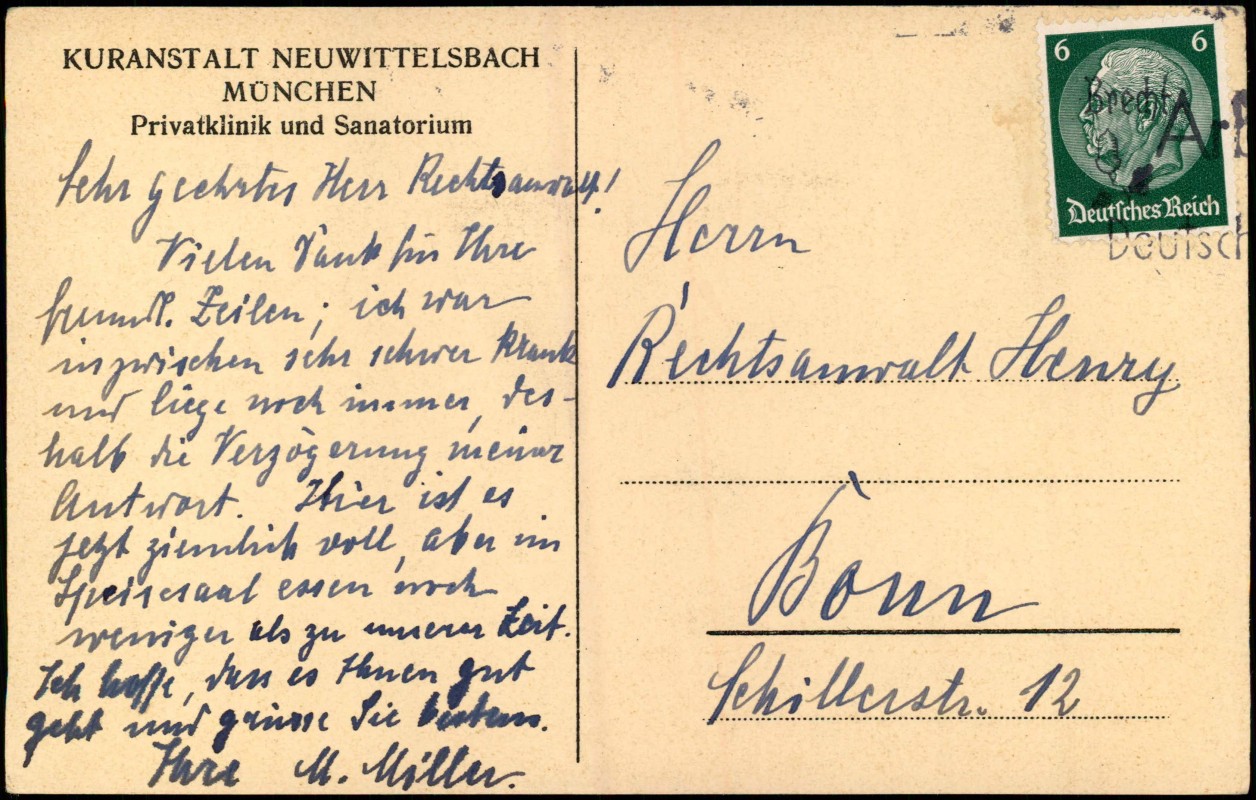 KURANSTALT NEUWITTELSBACH
MÜNCHEN
Privatklinik und Sanatorium
Sehr geehrter Herr Rechtsanwalt!
Vielen Dank für Ihre
freundl. Zeilen; ich war
inzwischen sehr schwer krank
und liege noch immer, des-
halb die Verzögerung meiner
Antwort. Hier ist es
jetzt ziemlich voll, aber im
Speisesaal essen noch
weniger als zu unserer Zeit.
Ich hoffe, dass es Ihnen gut
geht und grüsse Sie bestens.
Ihre M. Miller.
6 6
Deutsches Reich
Brecht
Deutsch
Herrn
Rechtsanwalt Henry
Bonn
Schillerstr. 12